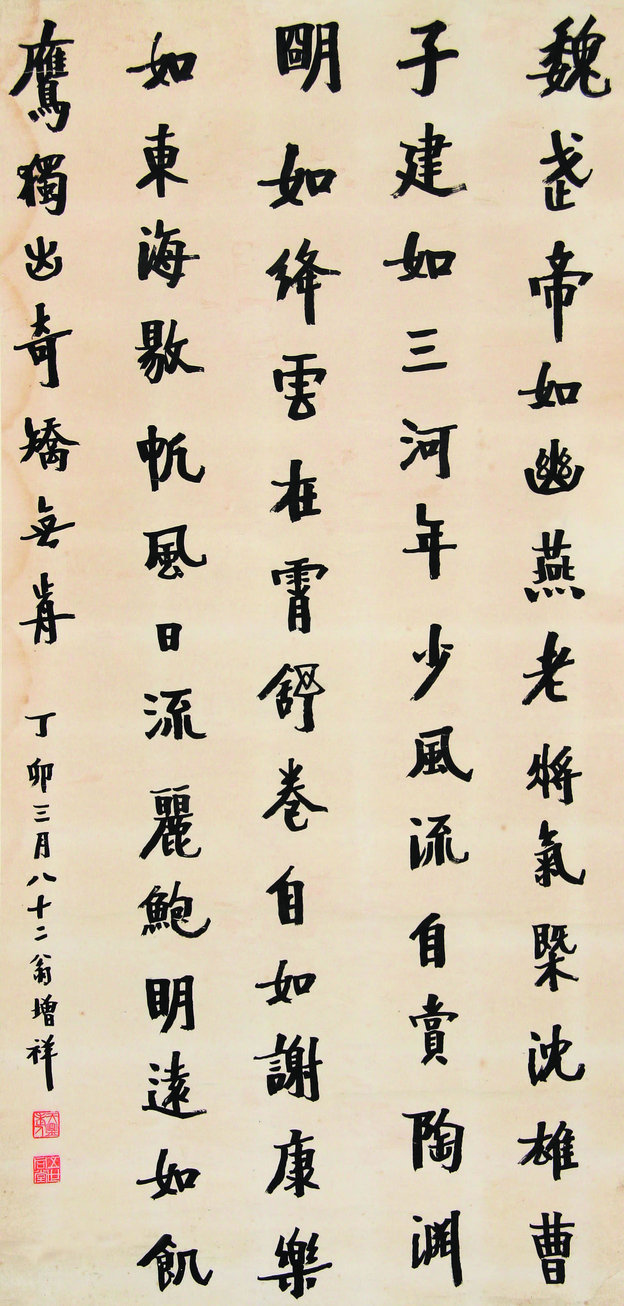 魏武帝如幽燕老將氣槩沈雄曹
子建如三河年少風流自賞陶淵
朙如絳雲在霄舒卷自如謝康樂
如東海敭帆風日流麗鮑明遠如飢
鷹獨出奇矯無歬
丁卯三月八十二翁增祥